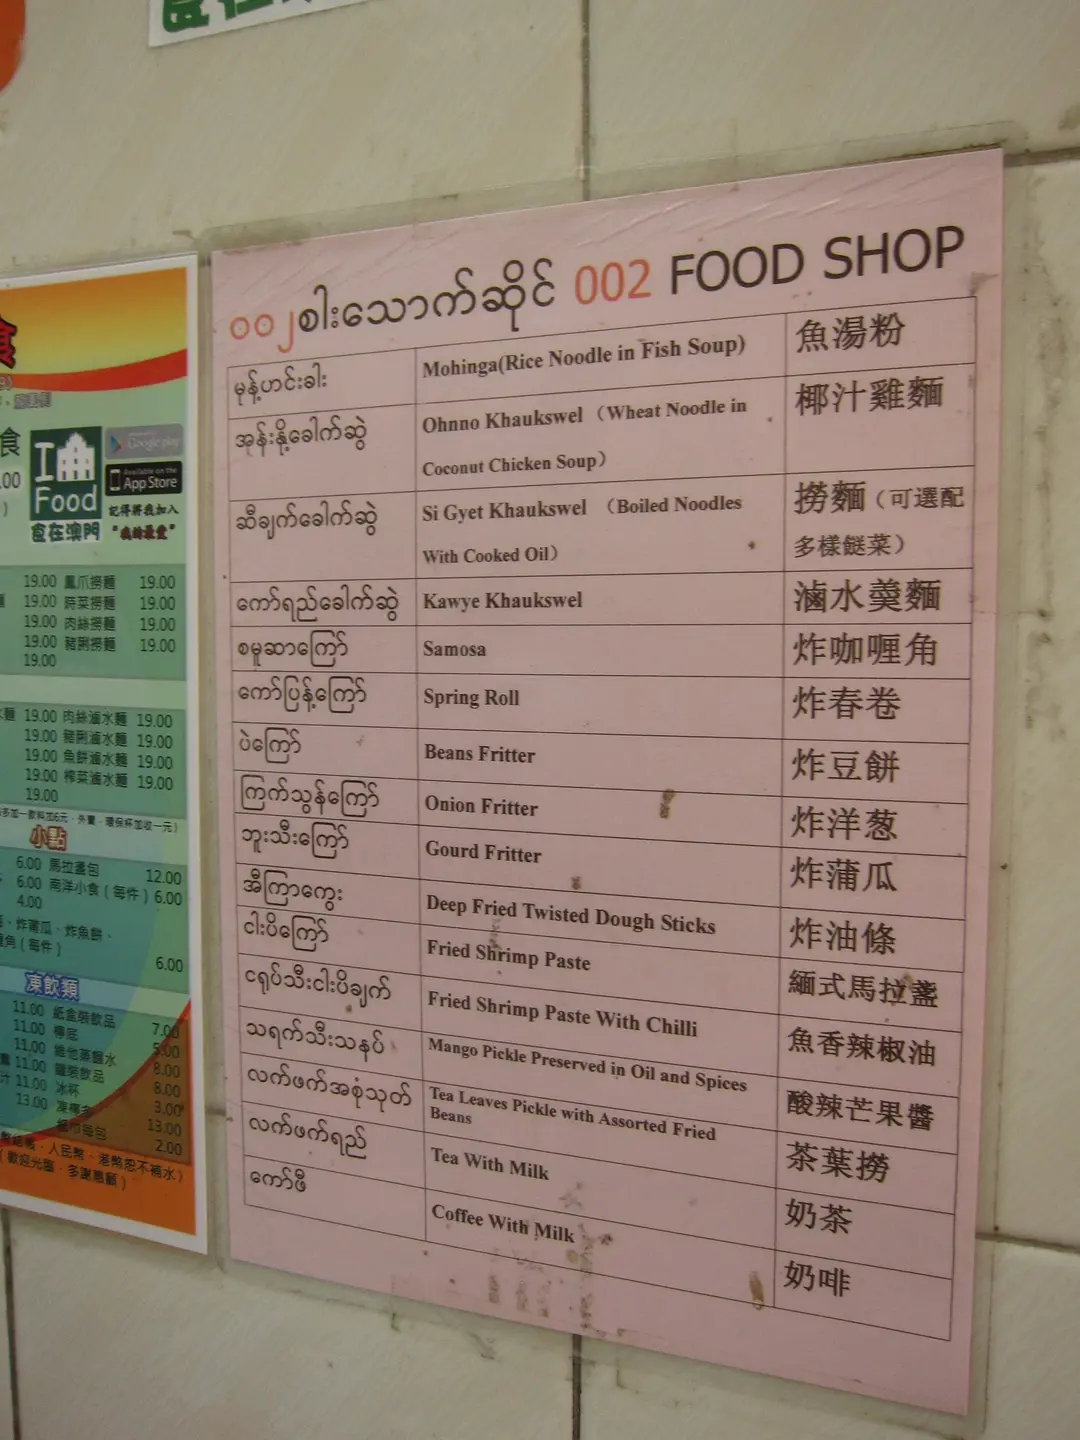 ၀၀၂စါးသောက်ဆိုင် 002 FOOD SHOP
မုန့်ဟင်းခါး Mohinga(Rice Noodle in Fish Soup) 魚湯粉
အုန်းနို့ခေါက်ဆွဲ Ohnno Khaukswel （Wheat Noodle in 椰汁雞麵
Coconut Chicken Soup）
ဆီချက်ခေါက်ဆွဲ Si Gyet Khaukswel （Boiled Noodles 撈麵（可選配
With Cooked Oil） 多樣餸菜）
ကော်ရည်ခေါက်ဆွဲ Kawye Khaukswel 滷水羹麵
စမူဆာကြော် Samosa 炸咖喱角
ကော်ပြန့်ကြော် Spring Roll 炸春卷
ပဲကြော် Beans Fritter 炸豆餅
ကြက်သွန်ကြော် Onion Fritter 炸洋葱
ဘူးသီးကြော် Gourd Fritter 炸蒲瓜
အီကြာကွေး Deep Fried Twisted Dough Sticks 炸油條
ငါးပိကြော် Fried Shrimp Paste 緬式馬拉盞
ငရုပ်သီးငါးပိချက် Fried Shrimp Paste With Chilli 魚香辣椒油
သရက်သီးသနပ် Mango Pickle Preserved in Oil and Spices 酸辣芒果醬
လက်ဖက်အစုံသုတ် Tea Leaves Pickle with Assorted Fried 茶葉撈
Beans
လက်ဖက်ရည် Tea With Milk 奶茶
ကော်ဖီ Coffee With Milk 奶啡
I
Food
食在澳門
Google play
Available on the
App Store
記得將我加入
"我的最愛"
19.00 鳳爪撈麵 19.00
19.00 時菜撈麵 19.00
19.00 肉絲撈麵 19.00
19.00 豬脷撈麵 19.00
19.00
19.00 肉絲滷水麵 19.00
19.00 豬脷滷水麵 19.00
19.00 魚餅滷水麵 19.00
19.00 榨菜滷水麵 19.00
19.00
小點
6.00 馬拉盞包 12.00
6.00 南洋小食（每件）6.00
4.00
炸蒲瓜．炸魚餅．
角（每件） 6.00
凍飲類
11.00 紙盒裝飲品 7.00
11.00 檸底 5.00
11.00 維他蒸餾水 8.00
11.00 罐裝飲品 8.00
11.00 冰杯 3.00
13.00 13.00
2.00
人民幣．港幣恕不補水）
（歡迎光臨．多謝惠顧）